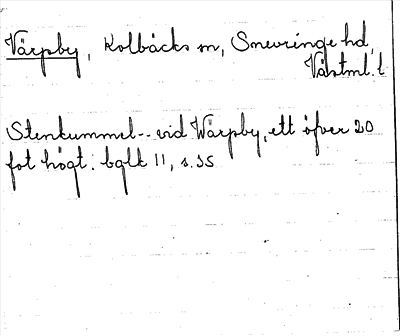 Värpby, Kolbäcks sn, Snevringe hd,
Västml. l
Stenkummel-- vid Wärpby, ett öfver 20
fot högt: bqlk 11, s. 35